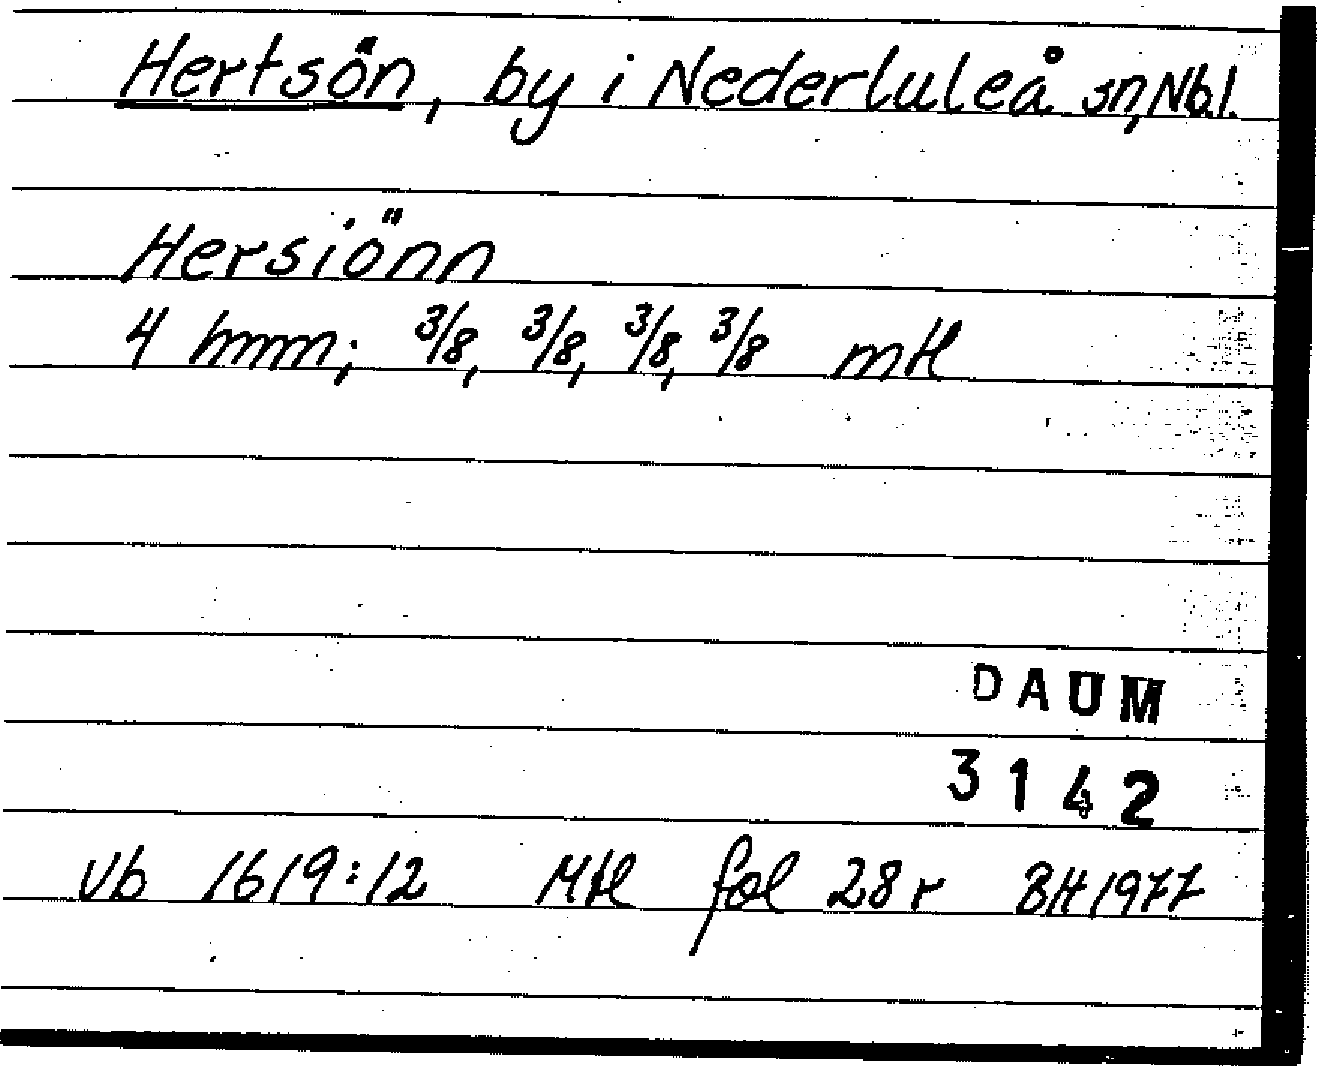 Hertsön, by i Nederluleå sn, Nb.l.
Hersiönn
4 hmn; 3/8, 3/8, 3/8, 3/8 mtl
DAUM
3142
Vb 1619:12 Mtl fol 28 r BH 1977